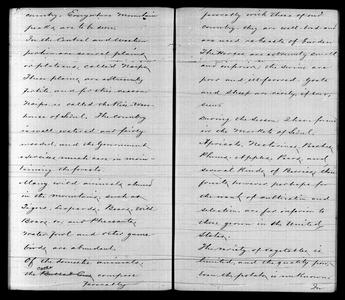 country. Everywhere mountain
peaks are to be seen.
In the Central and Western
portion are several plains
or plateaus, called "Naipo".
These plains are extremely
fertile and for this reason
Naipo is called the Rice
house of Seoul. The country
is well watered and fairly
wooded, and the Government
exercises much care in main-
taining the forests.
Many wild animals abound
in the mountains, such as
Tigers, Leopards, Bears, Wild
Boars, &c and Pheasants,
Water fowl and other game
birds are abundant.
Of the domestic animals,
the compare
favorably
favorably with those of our
country, they are well bred and
are used as beasts of burden.
The Horses are extremely small
and inferior, the swine are
poor and ill formed. Goats
and sheep are rarely if ever,
seen.
During the season I have found
in the Markets of Seoul,
Apricots, Nectarines, Peaches,
Plums, Apples, Pears, and
several kinds of Berries, these
fruits, however perhaps for
the want of cultivation and
selection are far inferior to
those grown in the United
States.
The variety of vegetables is
limited, and the quality poor,
here the potato is unknown
In